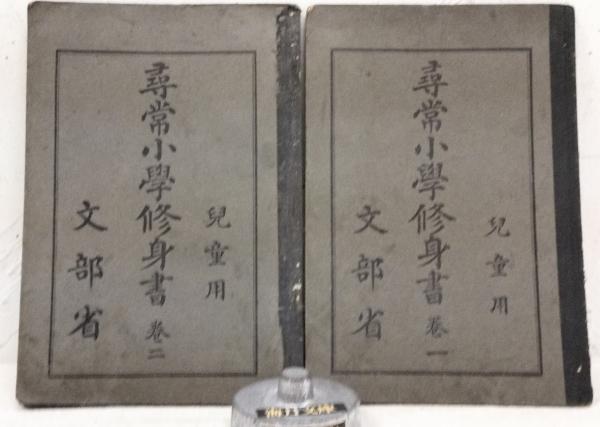 兒童用
尋常小學修身書 卷一
文部省
兒童用
尋常小學修身書 卷二
文部省
海月文庫